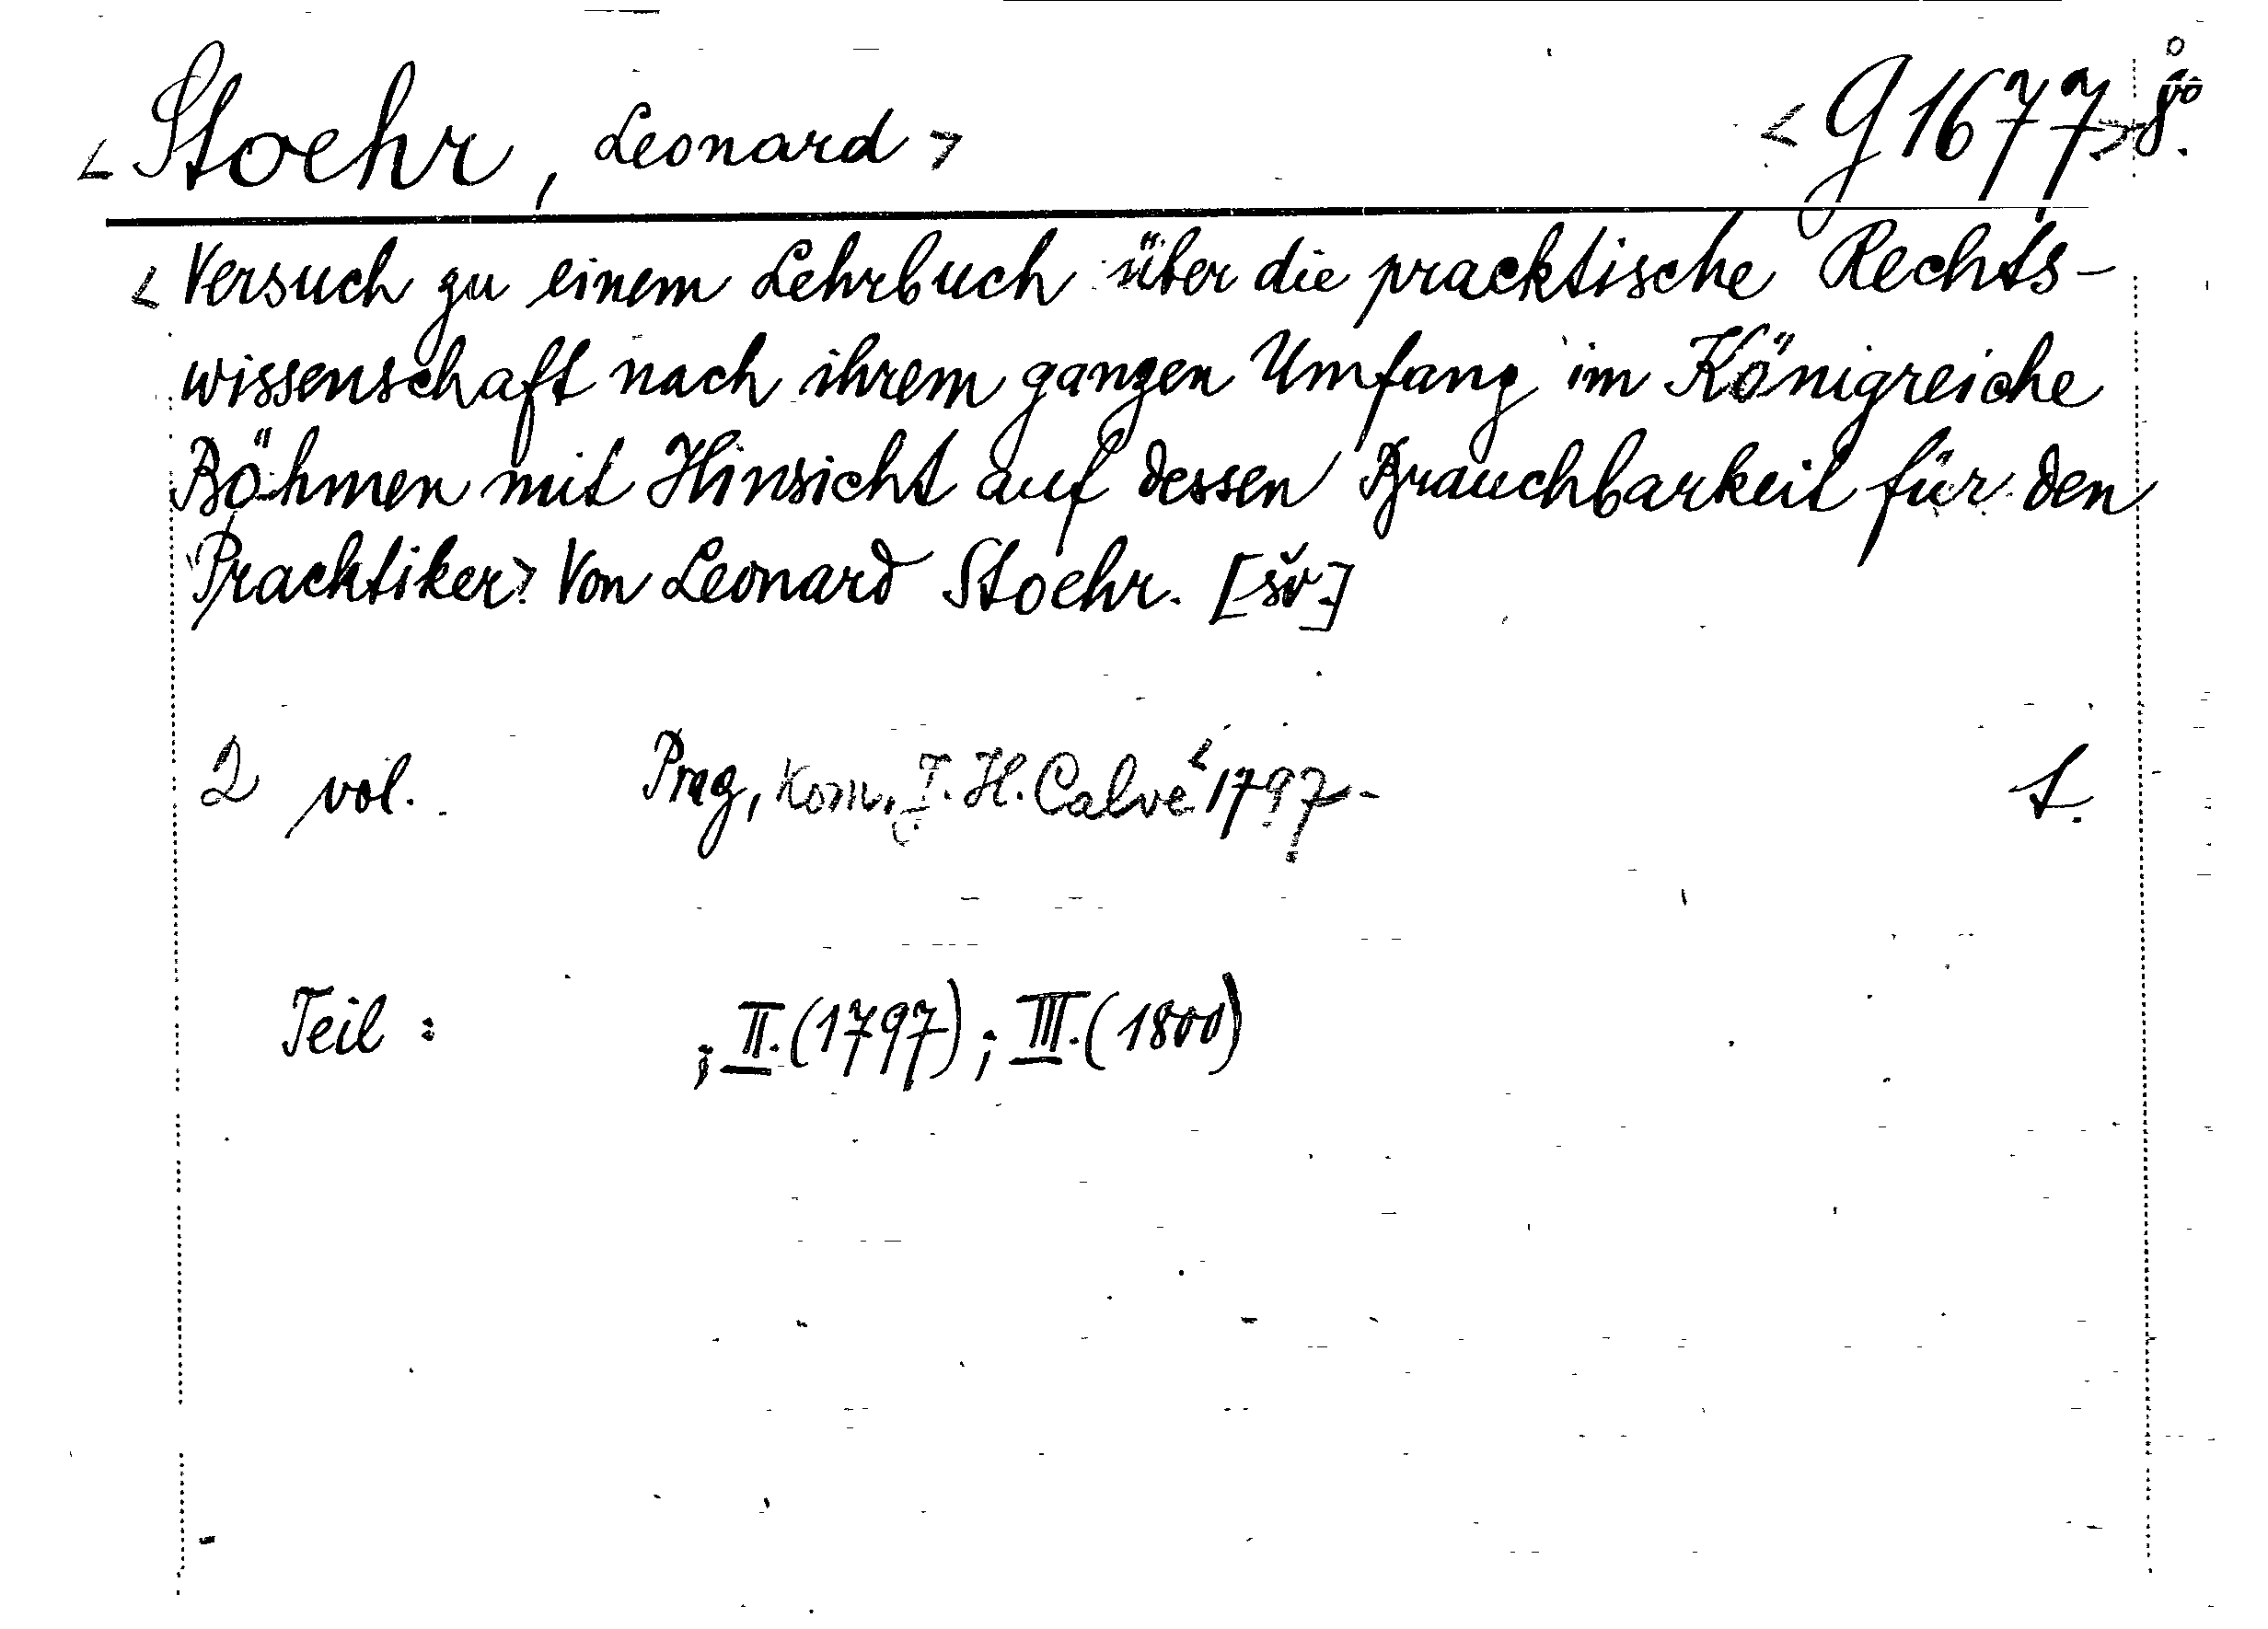 <Stoehr, Leonard> <G 1677> 8°.
<Versuch zu einem Lehrbuch über die pracktische Rechts-
wissenschaft nach ihrem ganzen Umfang im Königreiche
Böhmen mit Hinsicht auf dessen Brauchbarkeit für den
Pracktiker> Von Leonard Stoehr. [šv.]
2 vol. Prag, Kom. J. H. Calve <1797-
Teil : ; II. (1797) ; III. (1800)